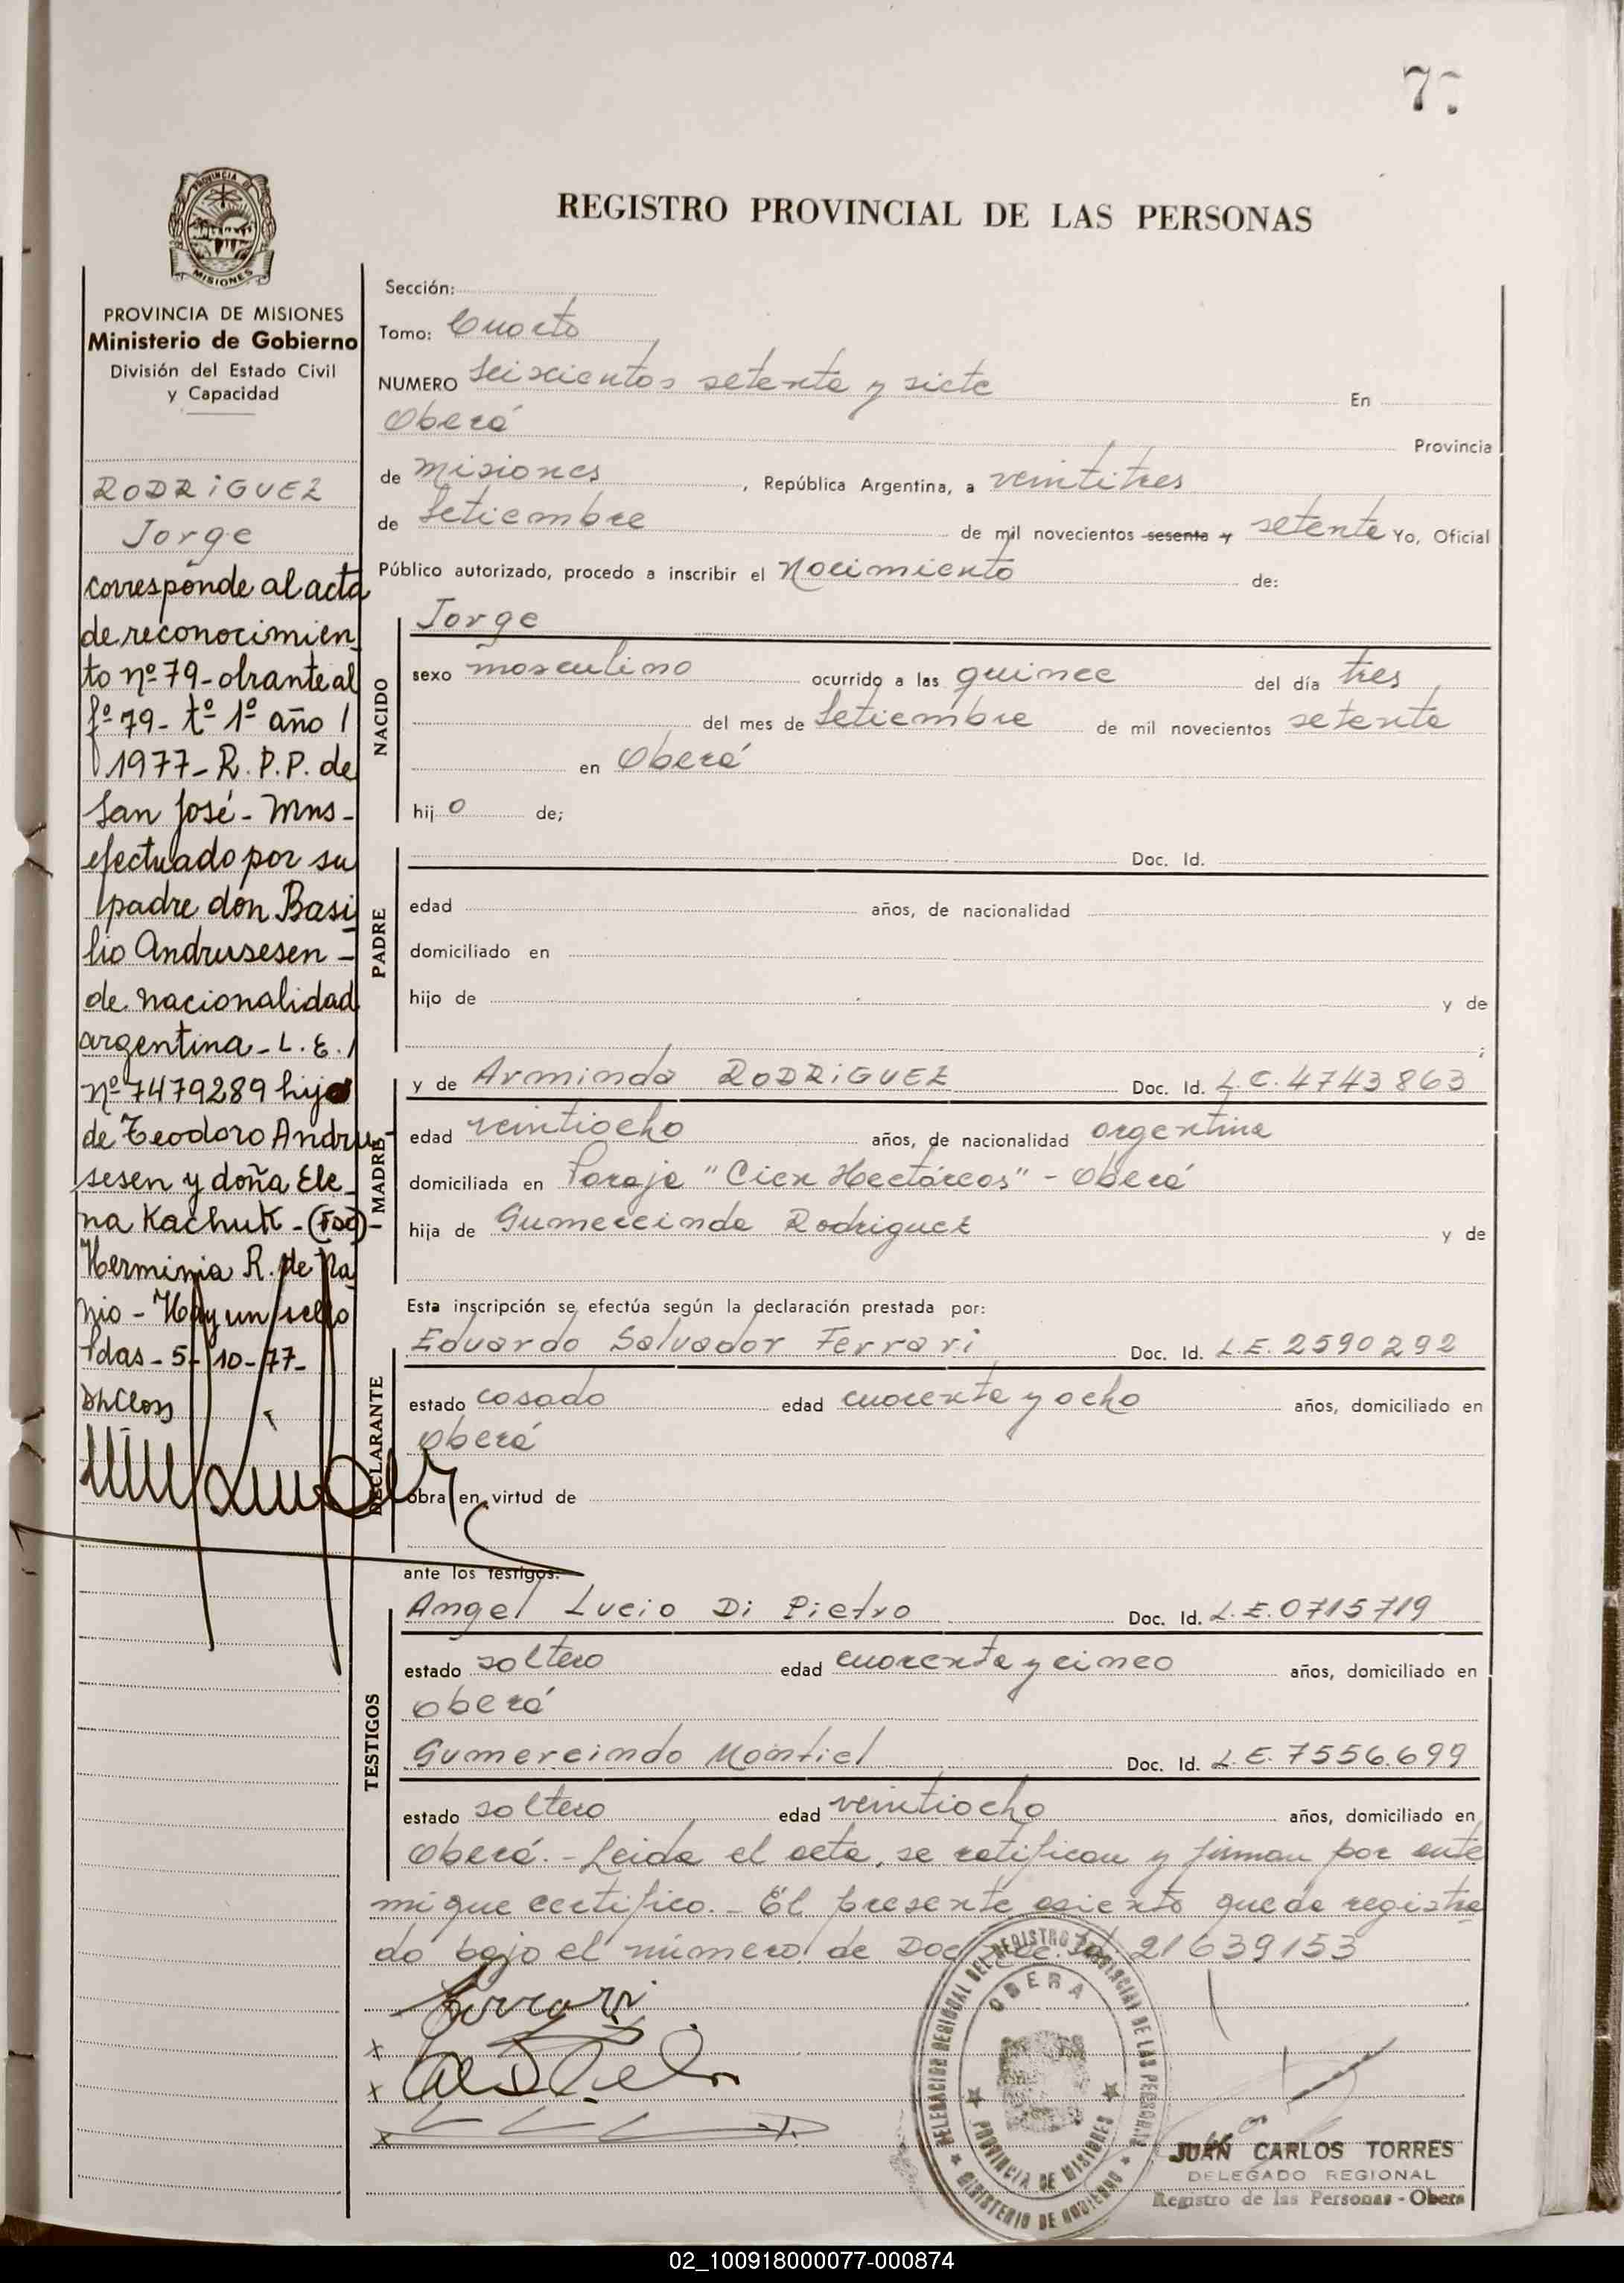 7
PROVINCIA DE
MISIONES
PROVINCIA DE MISIONES
Ministerio de Gobierno
División del Estado Civil
y Capacidad
RODRIGUEZ
Jorge
corresponde al acta
de reconocimien
to nº 79 - obrante al
fº 79 - tº 1º año /
1977 - R. P. P. de
San José - Mns -
efectuado por su
padre don Basi
lio Andrusesen -
de nacionalidad
argentina - L. E. /
nº 7479289 hijo
de Teodoro Andru-
sesen y doña Ele
na Kachuk - (Fdo) -
Herminia R. de Pa
nio - Hay un sello
Pdas - 5 - 10 - 77 -
REGISTRO PROVINCIAL DE LAS PERSONAS
Sección:
Tomo: Cuarto
NUMERO Seiscientos setenta y siete En
Oberá Provincia
de Misiones, República Argentina, a veintitres
de Setiembre de mil novecientos sesenta y setenta Yo, Oficial
Público autorizado, procedo a inscribir el Nacimiento de:
NACIDO
Jorge
sexo masculino ocurrido a las quince del día tres
del mes de Setiembre de mil novecientos setenta
en Oberá
hij o de;
PADRE
Doc. Id.
edad años, de nacionalidad
domiciliado en
hijo de y de
;
MADRE
y de Arminda RODRIGUEZ Doc. Id. L.C. 4743863
edad veintiocho años, de nacionalidad argentina
domiciliada en Paraje "Cien Hectáreas" - Oberá
hija de Gumercinda Rodriguez y de
Esta inscripción se efectúa según la declaración prestada por:
DECLARANTE
Eduardo Salvador Ferrari Doc. Id. L.E. 2590292
estado casado edad cuarenta y ocho años, domiciliado en
Oberá
obra en virtud de
ante los testigos:
TESTIGOS
Angel Lucio Di Pietro Doc. Id. L.E. 0715719
estado soltero edad cuarenta y cinco años, domiciliado en
Oberá
Gumercindo Montiel Doc. Id. L.E. 7556.699
estado soltero edad veintiocho años, domiciliado en
Oberá. - Leida el acta, se ratifican y firman por ante
mi que certifico. - El presente asiento queda registra
do bajo el número de Doc. Nac. Id. 21639153
Ferrari
DELEGACION REGIONAL DEL REGISTRO PROVINCIAL DE LAS PERSONAS
OBERA
PROVINCIA DE MISIONES
MINISTERIO DE GOBIERNO
JUAN CARLOS TORRES
DELEGADO REGIONAL
Registro de las Personas - Obera
02_100918000077-000874